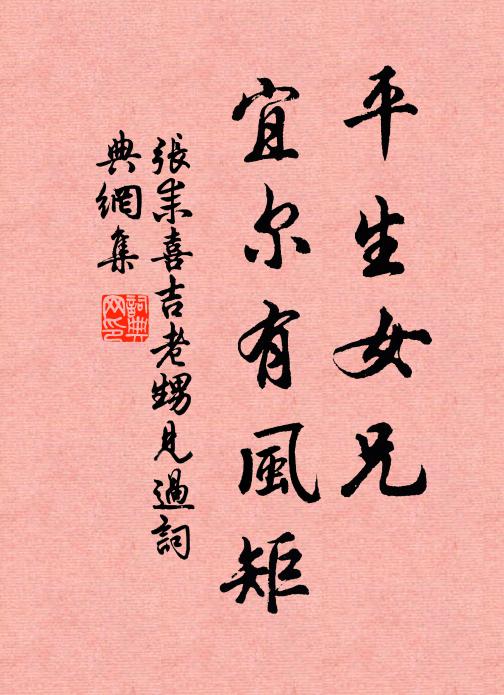 平生女兄
宜尔有風矩
張耒喜吉老甥見過詞
典網集
詞典
网印